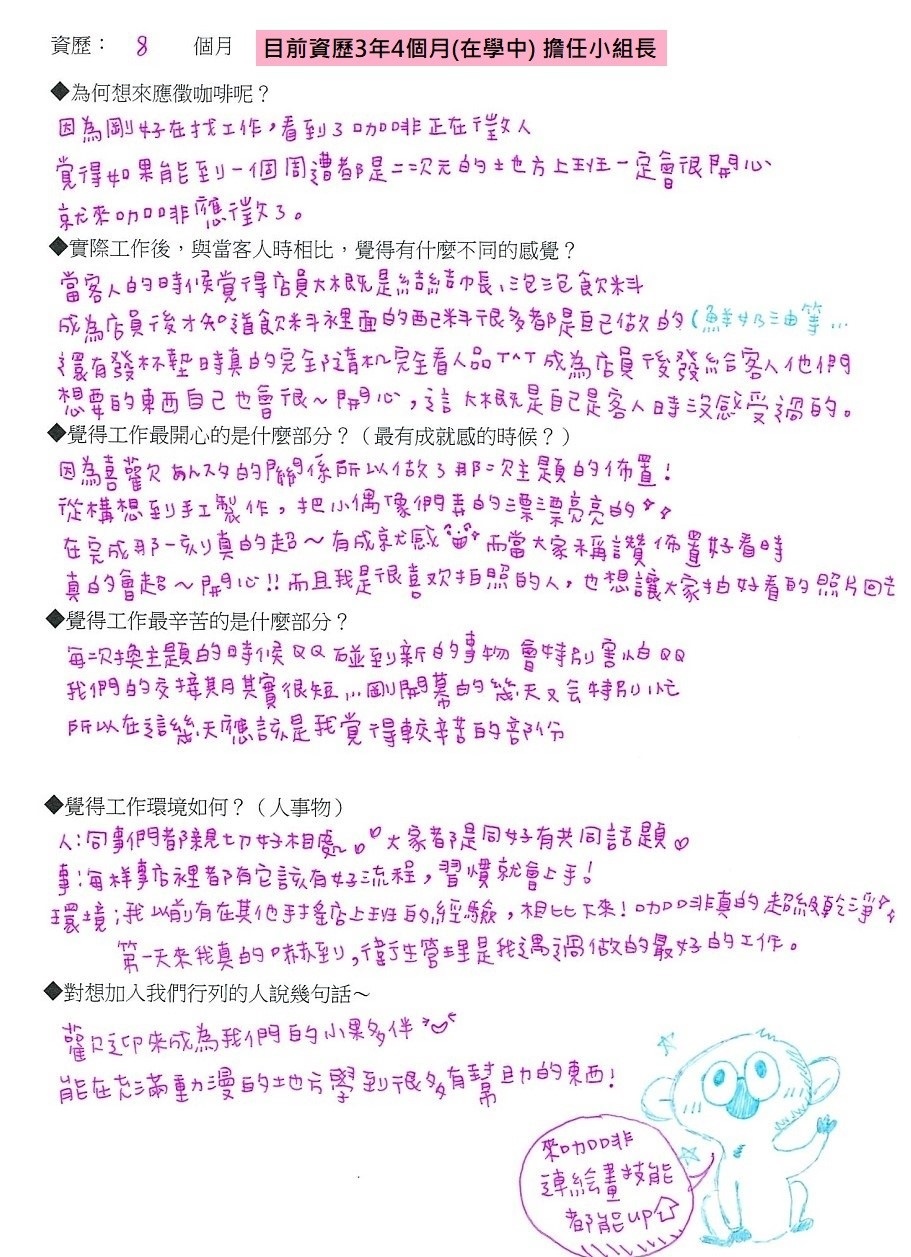 資歷： 8 個月 目前資歷3年4個月(在學中) 擔任小組長
◆為何想來應徵咖啡呢？
因為剛好在找工作，看到了咖啡正在徵人
覺得如果能到一個周遭都是二次元的地方上班一定會很開心
就來咖啡應徵了。
◆實際工作後，與當客人時相比，覺得有什麼不同的感覺？
當客人的時候覺得店員大概就是結結帳、泡泡飲料
成為店員後才知道飲料裡面的配料很多都是自己做的(鮮奶油等...
還有發杯墊時真的完全隨機完全看人品T^T成為店員後發給客人他們
想要的東西自己也會很~開心，這大概是自己是客人時沒感受過的。
◆覺得工作最開心的是什麼部分？（最有成就感的時候？）
因為喜歡あんスタ的關係所以做了那次主題的佈置！
從構想到手工製作，把小偶像們弄的漂漂亮亮的
在完成那一刻真的超~有成就感 而當大家稱讚佈置好看時
真的會超~開心!!而且我是很喜欢拍照的人，也想讓大家拍好看的照片回去
◆覺得工作最辛苦的是什麼部分？
每次換主題的時候QQ碰到新的事物會特別害怕QQ
我們的交接期其實很短...剛開幕的幾天又会特別忙
所以在這幾天應該是我覺得較辛苦的部份
◆覺得工作環境如何？（人事物）
人:同事們都親切好相處 大家都是同好有共同話題
事:每样事店裡都有它該有好流程，習慣就會上手!
環境:我以前有在其他手搖店上班的經驗，相比下來!咖啡真的超級乾淨
第一天來我真的嚇到，衛生管理是我遇過做的最好的工作。
◆對想加入我們行列的人說幾句話～
歡迎來成為我們的小夥伴
能在充滿動漫的地方學到很多有幫助的東西!
來咖啡
連繪畫技能
都能up